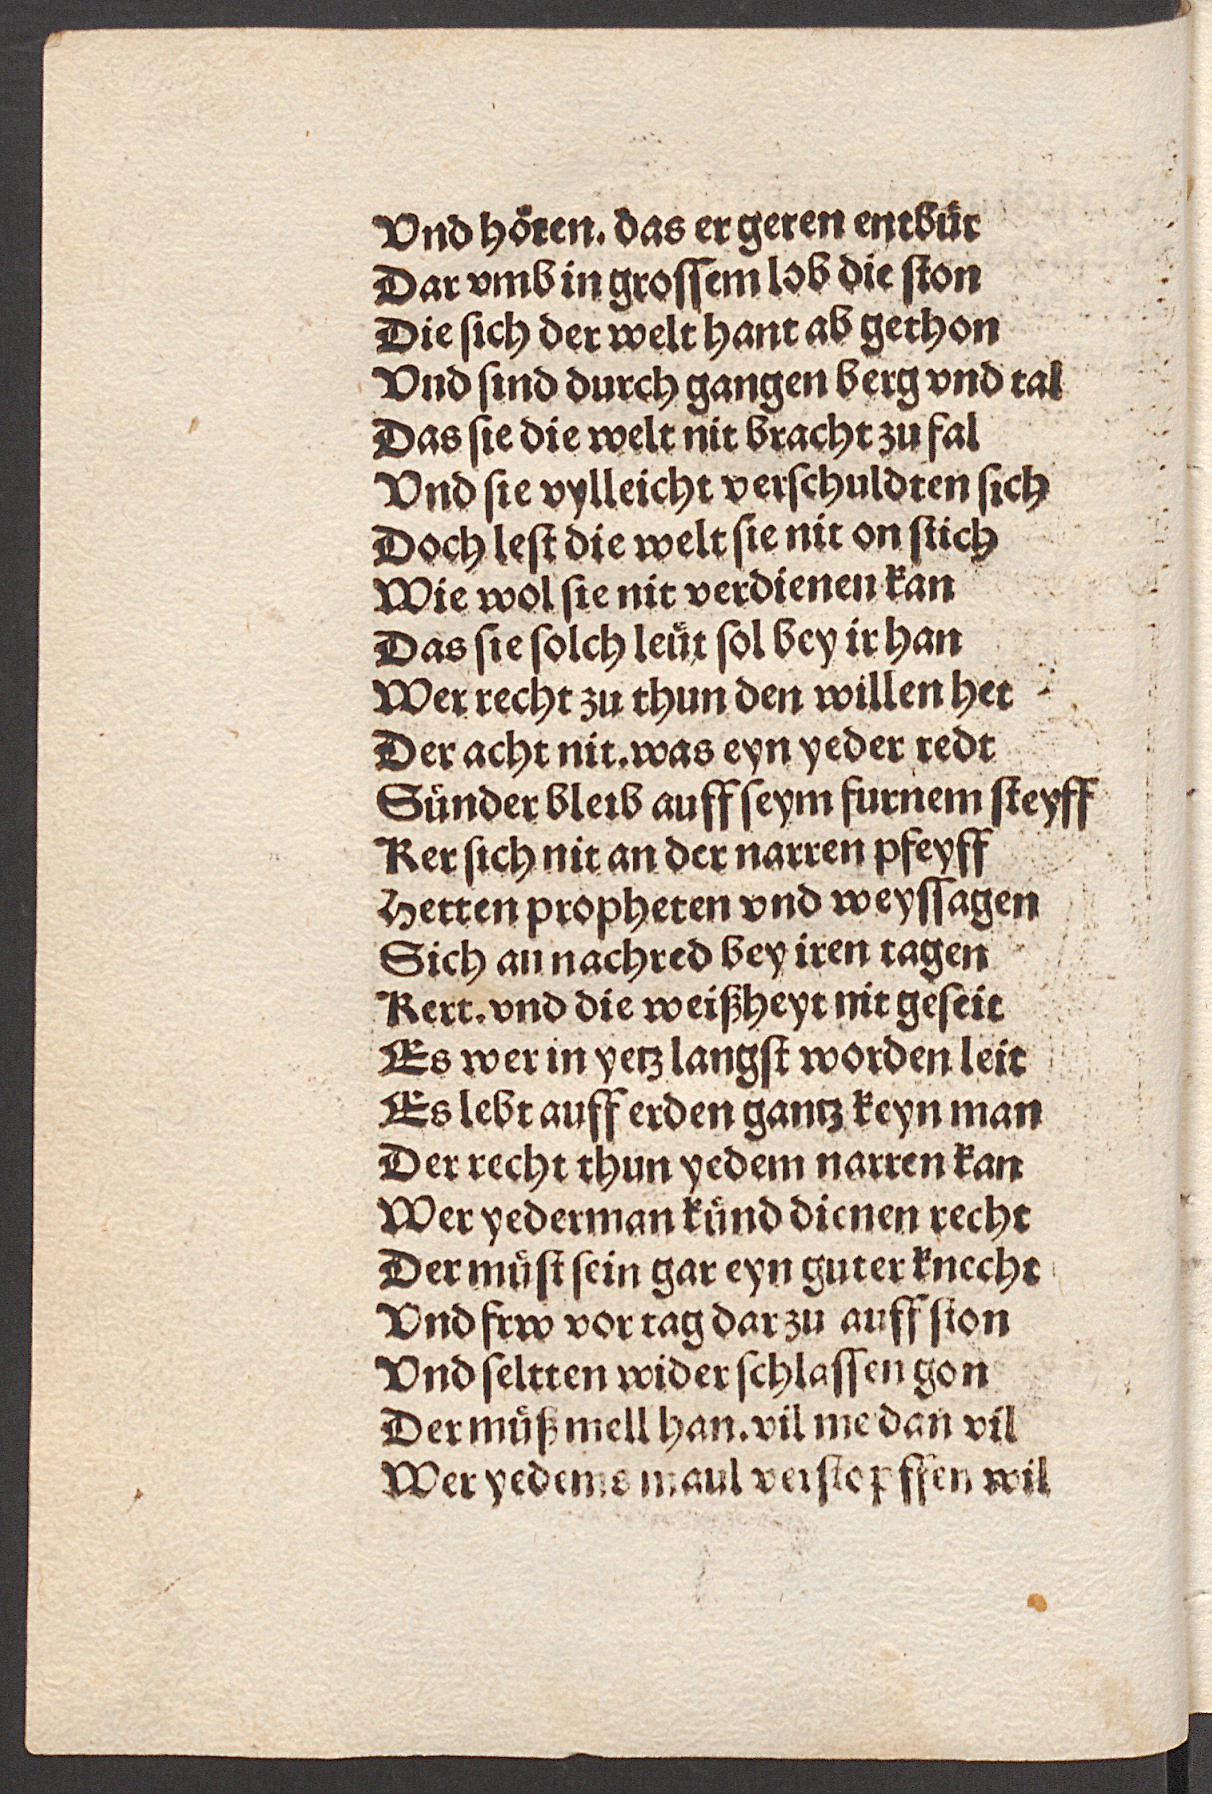 Vnd hoͤren. das er geren entbuͤr
Dar vmb in groſſem lob die ſton
Die ſich der welt hant ab gethon
Vnd ſind durch gangen berg vnd tal
Das ſie die welt nit bracht zu fal
Vnd ſie vylleicht verſchuldten ſich
Doch leſt die welt ſie nit on ſtich
Wie wol ſie nit verdienen kan
Das ſie ſolch leuͤt ſol bey ir han
Wer recht zu thun den willen het
Der acht nit. was eyn yeder redt
Suͤnder bleib auff ſeym furnem ſteyff
Ker ſich nit an der narren pfeyff
Hetten propheten vnd weyſſagen
Sich an nachred bey iren tagen
Kert. vnd die weißheyt nit geſeit
Es wer in yetz langſt worden leit
Es lebt auff erden gantz keyn man
Der recht thun yedem narren kan
Wer yederman kuͤnd dienen recht
Der muͤſt ſein gar eyn guter knecht
Vnd frw vor tag dar zu auff ſton
Vnd ſeltten wider ſchlaffen gon
Der muͤß mell han. vil me dan vil
Wer yedems maul verſtopffen wil